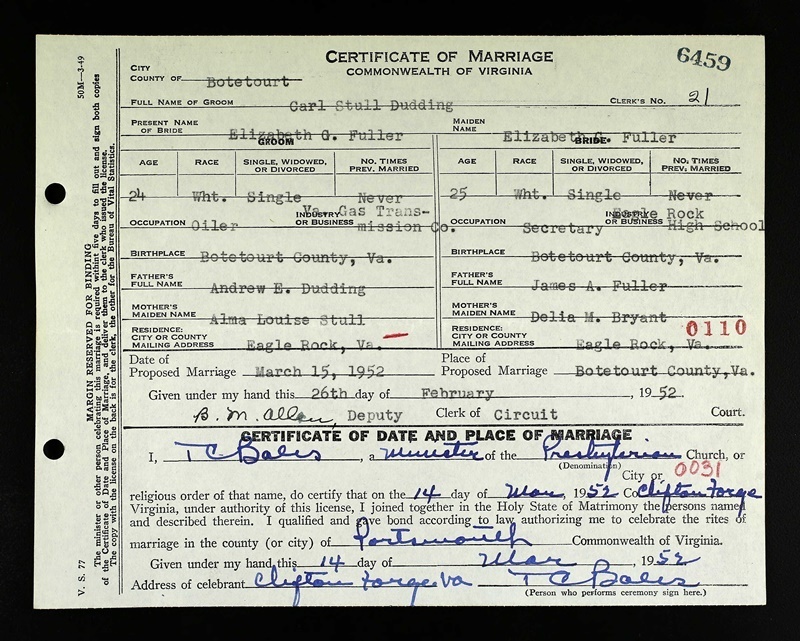 CERTIFICATE OF MARRIAGE
COMMONWEALTH OF VIRGINIA
6459
CITY
COUNTY OF Botetourt
FULL NAME OF GROOM Carl Stull Dudding CLERK'S NO. 21
PRESENT NAME OF BRIDE Elizabeth G. Fuller MAIDEN NAME Elizabeth G. Fuller
GROOM BRIDE
AGE RACE SINGLE, WIDOWED, OR DIVORCED NO. TIMES PREV. MARRIED AGE RACE SINGLE, WIDOWED, OR DIVORCED NO. TIMES PREV. MARRIED
24 Wht. Single Never 25 Wht. Single Never
OCCUPATION Oiler INDUSTRY OR BUSINESS Va. Gas Trans-mission Co. OCCUPATION Secretary INDUSTRY OR BUSINESS Eagle Rock High School
BIRTHPLACE Botetourt County, Va. BIRTHPLACE Botetourt County, Va.
FATHER'S FULL NAME Andrew E. Dudding FATHER'S FULL NAME James A. Fuller
MOTHER'S MAIDEN NAME Alma Louise Stull MOTHER'S MAIDEN NAME Delia M. Bryant
0110
RESIDENCE: CITY OR COUNTY MAILING ADDRESS Eagle Rock, Va. RESIDENCE: CITY OR COUNTY MAILING ADDRESS Eagle Rock, Va.
Date of Proposed Marriage March 15, 1952 Place of Proposed Marriage Botetourt County, Va.
Given under my hand this 26th day of February, 1952.
B. M. Allen, Deputy Clerk of Circuit Court.
CERTIFICATE OF DATE AND PLACE OF MARRIAGE
I, T C Bales, a Minister of the Presbyterian Church, or
(Denomination)
City or 0031
religious order of that name, do certify that on the 14 day of Mar, 1952 Co Clifton Forge
Virginia, under authority of this license, I joined together in the Holy State of Matrimony the persons named
and described therein. I qualified and gave bond according to law authorizing me to celebrate the rites of
marriage in the county (or city) of Portsmouth Commonwealth of Virginia.
Given under my hand this 14 day of Mar, 1952
Address of celebrant Clifton Forge Va T C Bales
(Person who performs ceremony sign here.)
V. S. 77 50M—3-49
MARGIN RESERVED FOR BINDING
The minister or other person celebrating this marriage is required within five days to fill out and sign both copies
of the Certificate of Date and Place of Marriage, and deliver them to the clerk who issued the license.
The copy with the license on the back is for the clerk, the other for the Bureau of Vital Statistics.